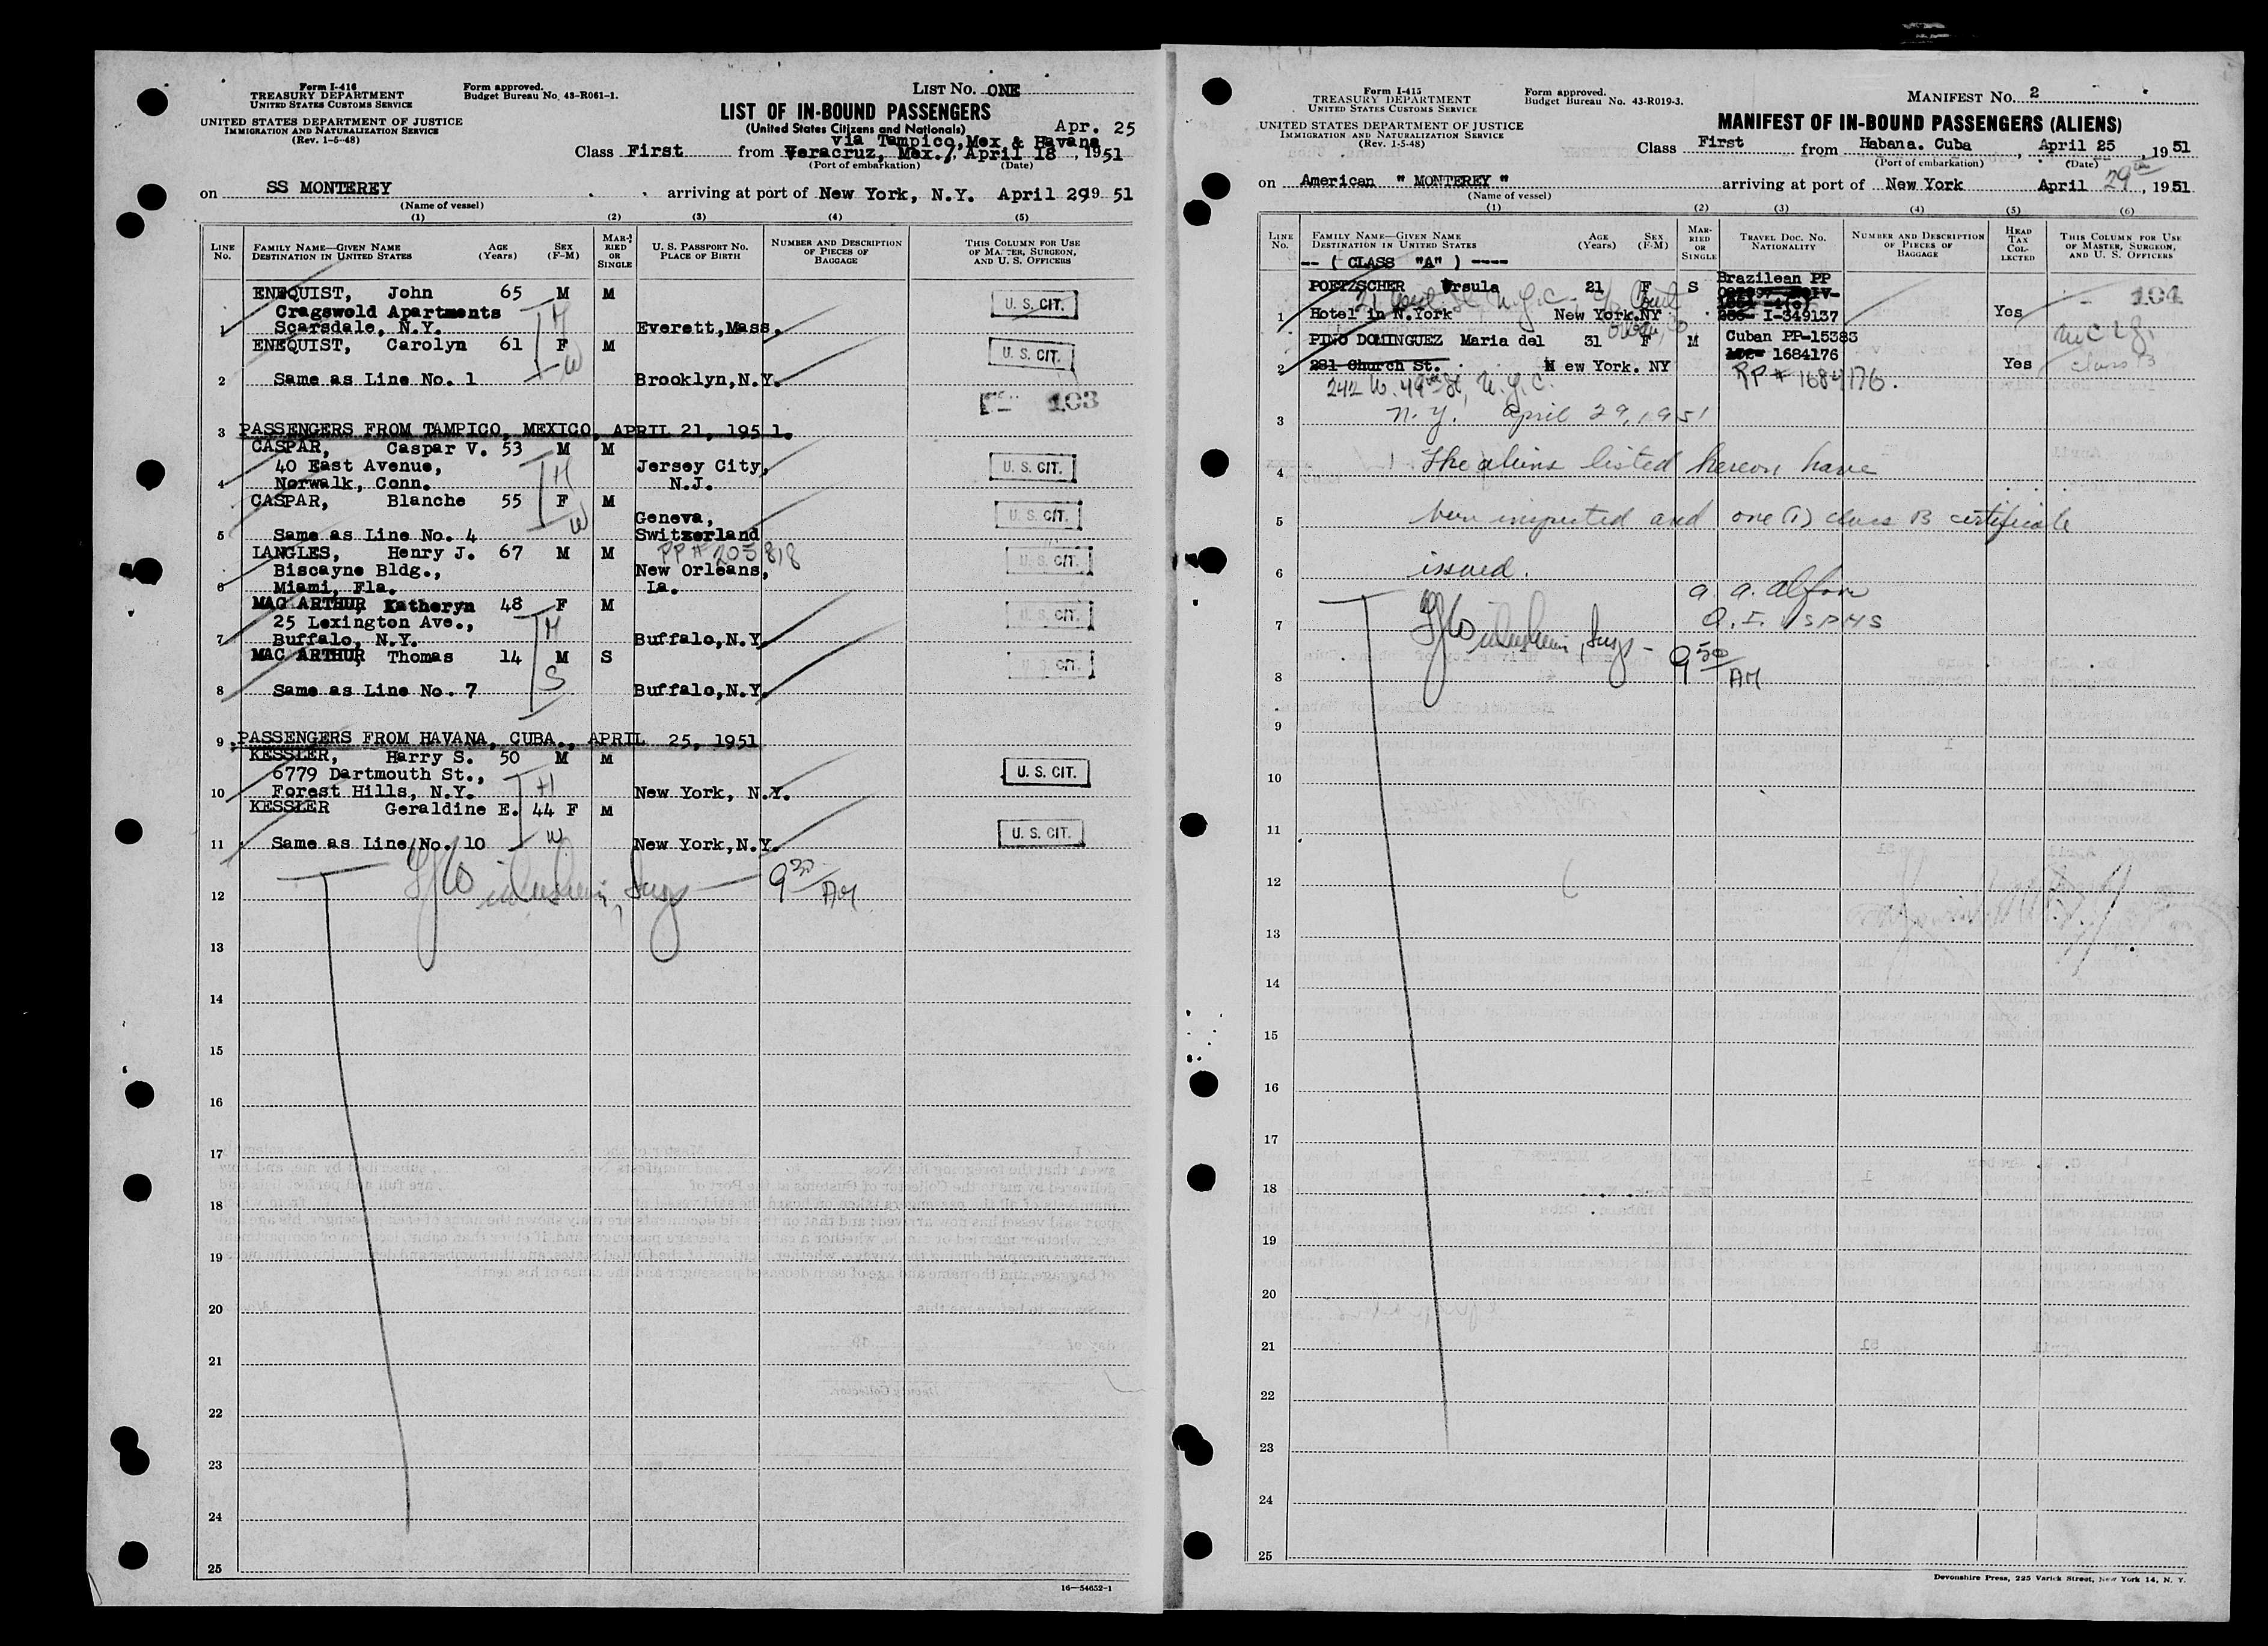 Form I-416
TREASURY DEPARTMENT
UNITED STATES CUSTOMS SERVICE
UNITED STATES DEPARTMENT OF JUSTICE
IMMIGRATION AND NATURALIZATION SERVICE
(Rev. 1-5-48)
Form approved.
Budget Bureau No. 43-R061-1.
LIST No. ONE
LIST OF IN-BOUND PASSENGERS
(United States Citizens and Nationals)
Apr. 25
via Tampico, Mex & Havana
Class First from Veracruz, Mex., April 18, 1951
(Port of embarkation) (Date)
on SS MONTEREY arriving at port of New York, N.Y. April 29 19 51
(Name of vessel)
(1) (2) (3) (4) (5)
LINE No.
FAMILY NAME—GIVEN NAME
DESTINATION IN UNITED STATES
AGE (Years)
SEX (F-M)
MARRIED OR SINGLE
U. S. PASSPORT NO.
PLACE OF BIRTH
NUMBER AND DESCRIPTION OF PIECES OF BAGGAGE
THIS COLUMN FOR USE OF MASTER, SURGEON, AND U. S. OFFICERS
ENEQUIST, John 65 M M U. S. CIT.
Cragswold Apartments
1 Scarsdale, N.Y. Everett, Mass.
H
ENEQUIST, Carolyn 61 F M U. S. CIT.
W
2 Same as Line No. 1 Brooklyn, N.Y.
103
3 PASSENGERS FROM TAMPICO, MEXICO, APRIL 21, 1951.
CASPAR, Caspar V. 53 M M
40 East Avenue, Jersey City, U. S. CIT.
4 Norwalk, Conn. H N.J.
CASPAR, Blanche 55 F M
W Geneva, U. S. CIT.
5 Same as Line No. 4 Switzerland
LANGLES, Henry J. 67 M M PP# 205818 U. S. CIT.
Biscayne Bldg., New Orleans,
6 Miami, Fla. La.
MAC ARTHUR Katheryn 48 F M U. S. CIT.
25 Lexington Ave., H
7 Buffalo, N.Y. Buffalo, N.Y.
MAC ARTHUR Thomas 14 M S U. S. CIT.
S
8 Same as Line No. 7 Buffalo, N.Y.
9 PASSENGERS FROM HAVANA, CUBA., APRIL 25, 1951
KESSLER, Harry S. 50 M M
6779 Dartmouth St., U. S. CIT.
10 Forest Hills, N.Y. H New York, N.Y.
KESSLER Geraldine E. 44 F M
W U. S. CIT.
11 Same as Line No. 10 New York, N.Y.
12 9 30 AM
13
14
15
16
17
18
19
20
21
22
23
24
25
16—54652-1
Form I-415
TREASURY DEPARTMENT
UNITED STATES CUSTOMS SERVICE
UNITED STATES DEPARTMENT OF JUSTICE
IMMIGRATION AND NATURALIZATION SERVICE
(Rev. 1-5-48)
Form approved.
Budget Bureau No. 43-R019-3.
MANIFEST No. 2
MANIFEST OF IN-BOUND PASSENGERS (ALIENS)
Class First from Habana. Cuba, April 25, 1951
(Port of embarkation) (Date)
on American " MONTEREY " arriving at port of New York April 29th, 1951
(Name of vessel)
(1) (2) (3) (4) (5) (6)
LINE No.
FAMILY NAME—GIVEN NAME
DESTINATION IN UNITED STATES
AGE (Years)
SEX (F-M)
MARRIED OR SINGLE
TRAVEL DOC. NO.
NATIONALITY
NUMBER AND DESCRIPTION OF PIECES OF BAGGAGE
HEAD TAX COLLECTED
THIS COLUMN FOR USE OF MASTER, SURGEON, AND U. S. OFFICERS
-- ( CLASS "A" ) ----
POETZSCHER Ursula 21 F S Brazilean PP
104
1 Hotel in N.York New York.NY I-349137 Yes
PINO DOMINGUEZ Maria del 31 F M Cuban PP-15383
1684176
2 281 Church St. N ew York. NY Yes class B
242 W. 49th St, N.Y.C. PP # 1684176.
3 N.Y. April 29, 1951
4 The aliens listed hereon have
5 been inspected and one (1) class B certificate
6 issued.
7
9 50 AM
8
9
10
11
12
13
14
15
16
17
18
19
20
21
22
23
24
25
Devonshire Press, 225 Varick Street, New York 14, N. Y.